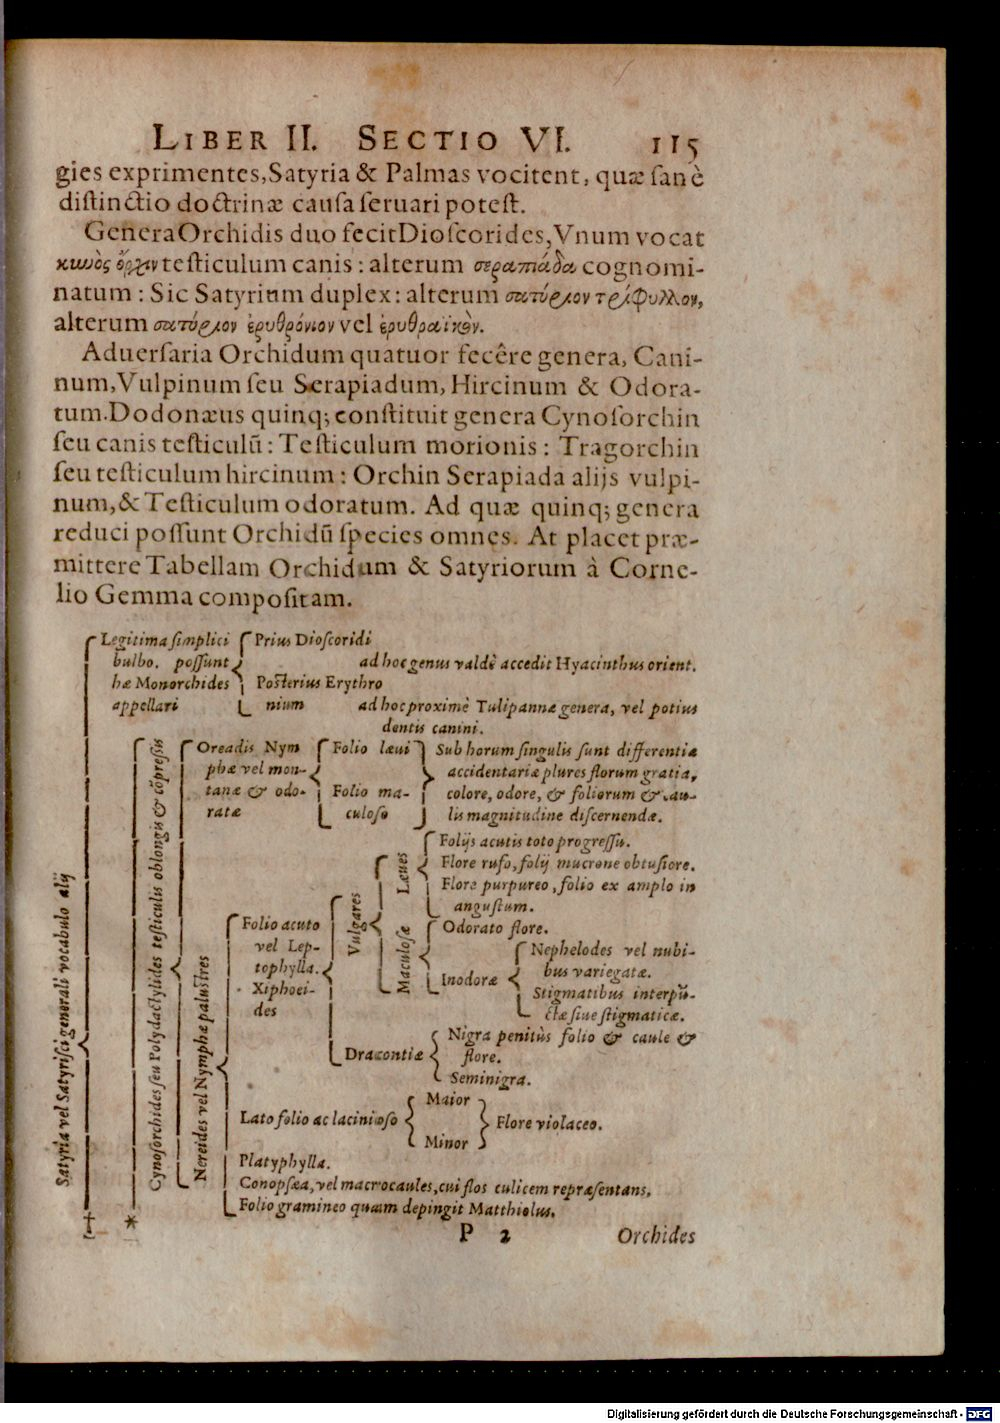 LIBER II. SECTIO VI. 115
gies exprimentes, Satyria & Palmas vocitent, quæ ſanè
diſtinctio doctrinæ cauſa ſeruari poteſt.
Genera Orchidis duo fecit Dioſcorides, Vnum vocat
κυνὸς ὄρχιν teſticulum canis : alterum σεραπιάδα cognomi-
natum : Sic Satyrium duplex : alterum σατύριον τρίφυλλον,
alterum σατύριον ἐρυθρόνιον vel ἐρυθραϊκὸν.
Aduerſaria Orchidum quatuor fecêre genera, Cani-
num, Vulpinum ſeu Serapiadum, Hircinum & Odora-
tum. Dodonæus quinq; conſtituit genera Cynoſorchin
ſeu canis teſticulũ : Teſticulum morionis : Tragorchin
ſeu teſticulum hircinum : Orchin Serapiada alijs vulpi-
num, & Teſticulum odoratum. Ad quæ quinq; genera
reduci poſſunt Orchidũ ſpecies omnes. At placet præ-
mittere Tabellam Orchidum & Satyriorum à Corne-
lio Gemma compoſitam.
Satyria vel Satyriſci generali vocabulo alij
Legitima ſimplici
bulbo. poſſunt
hæ Monorchides
appellari
Prius Dioſcoridi
ad hoc genus valdè accedit Hyacinthus orient.
Poſterius Erythro
nium
ad hoc proximè Tulipannæ genera, vel potius
dentis canini.
Cynoſorchides ſeu Polydactylides teſticulis oblongis & cõpreſsis
Oreadis Nym
phæ vel mon-
tanæ & odo-
ratæ
Folio læui
Folio ma-
culoſo
Sub horum ſingulis ſunt differentiæ
accidentariæ plures florum gratia,
colore, odore, & foliorum & cau-
lis magnitudine diſcernendæ.
Nereides vel Nymphæ paluſtres
Folio acuto
vel Lep-
tophylla.
Xiphoei-
des
Vulgares
Læues
Folijs acutis toto progreſſu.
Flore rufo, folij mucrone obtuſiore.
Flore purpureo, folio ex amplo in
anguſtum.
Maculoſæ
Odorato flore.
Inodoræ
Nephelodes vel nubi-
bus variegatæ.
Stigmatibus interpũ-
ctæ ſiue ſtigmaticæ.
Dracontiæ
Nigra penitùs folio & caule &
flore.
Seminigra.
Lato folio ac lacinioſo
Maior
Minor
Flore violaceo.
Platyphylla.
Conopſæa, vel macrocaules, cui flos culicem repræſentans.
Folio gramineo quam depingit Matthiolus.
† *
P 2 Orchides
Digitalisierung gefördert durch die Deutsche Forschungsgemeinschaft - DFG